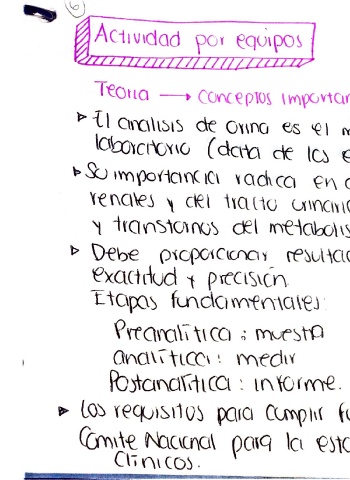 6
Actividad por equipos
Teoria → conceptos importan
▹ El analisis de orina es el m
laboratorio (data de los e
▹ Su importancia radica en d
renales y del tracto urinari
y transtornos del metabolis
▹ Debe proporcionar resultad
exactitud y precisión
Etapas fundamentales:
Preanalítica : muestra
analítica : medir
Postanalítica : informe.
▹ Los requisitos para cumplir f
Comite Nacional para la esta
Clínicos.